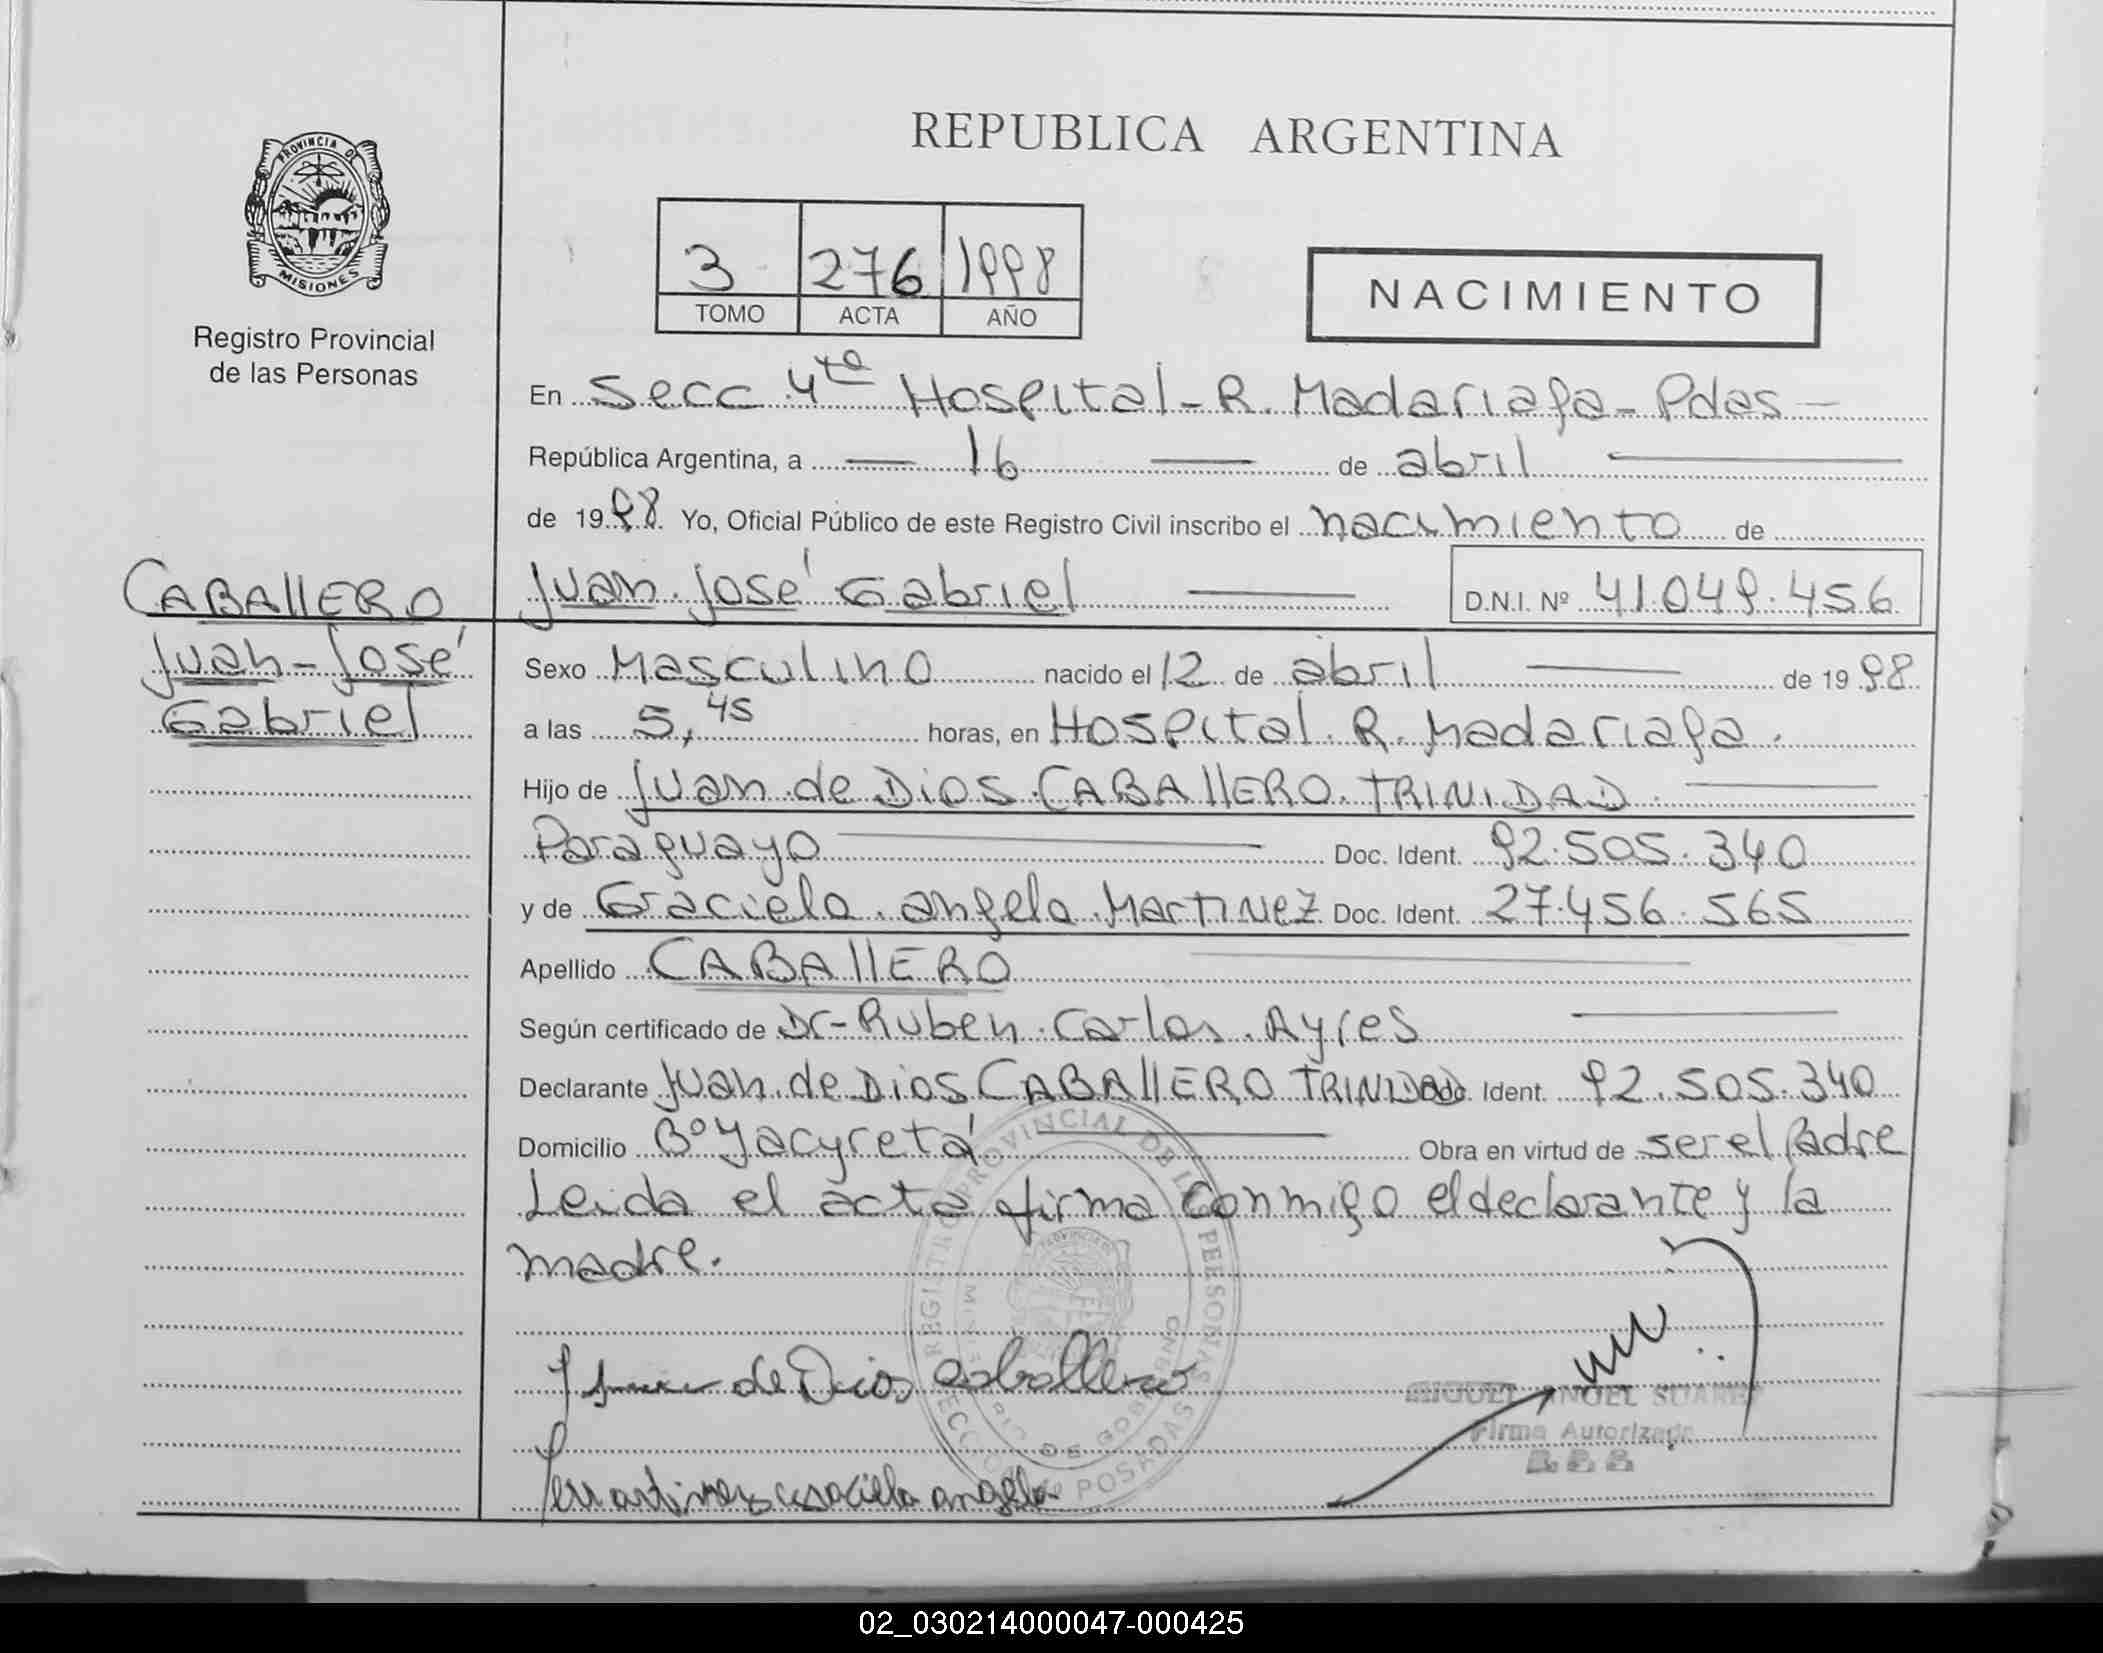 REPUBLICA ARGENTINA
PROVINCIA D
MISIONES
Registro Provincial
de las Personas
3 276 1998
TOMO ACTA AÑO
NACIMIENTO
En Secc 4ta Hospital - R. Madariaga - Pdas -
República Argentina, a — 16 — de abril —
de 1998. Yo, Oficial Público de este Registro Civil inscribo el nacimiento de
CABAllERO
Juan José Gabriel — D.N.I. Nº 41.049.456
Juan - José
Gabriel
Sexo Masculino nacido el 12 de abril — de 1998
a las 5,45 horas, en Hospital. R. Madariaga.
Hijo de Juan de Dios CABAllERO TRINIDAD. —
Paraguayo — Doc. Ident. 92.505.340
y de Graciela angela Martinez Doc. Ident. 27.456.565
Apellido CABAllERO —
Según certificado de Dr - Ruben Carlos Ayres —
Declarante Juan de Dios CABAllERO TRINIDAD Doc. Ident. 92.505.340
Domicilio Bº Yacyretá — Obra en virtud de ser el Padre
Leida el acta firma conmigo el declarante y la
madre.
REGISTRO PROVINCIAL DE LAS PERSONAS
MINISTERIO DE GOBIERNO
SECCION 4º POSADAS
de Dios Caballero
MIGUEL ANGEL SUAREZ
Firma Autorizada
Martinez Graciela angela
02_030214000047-000425